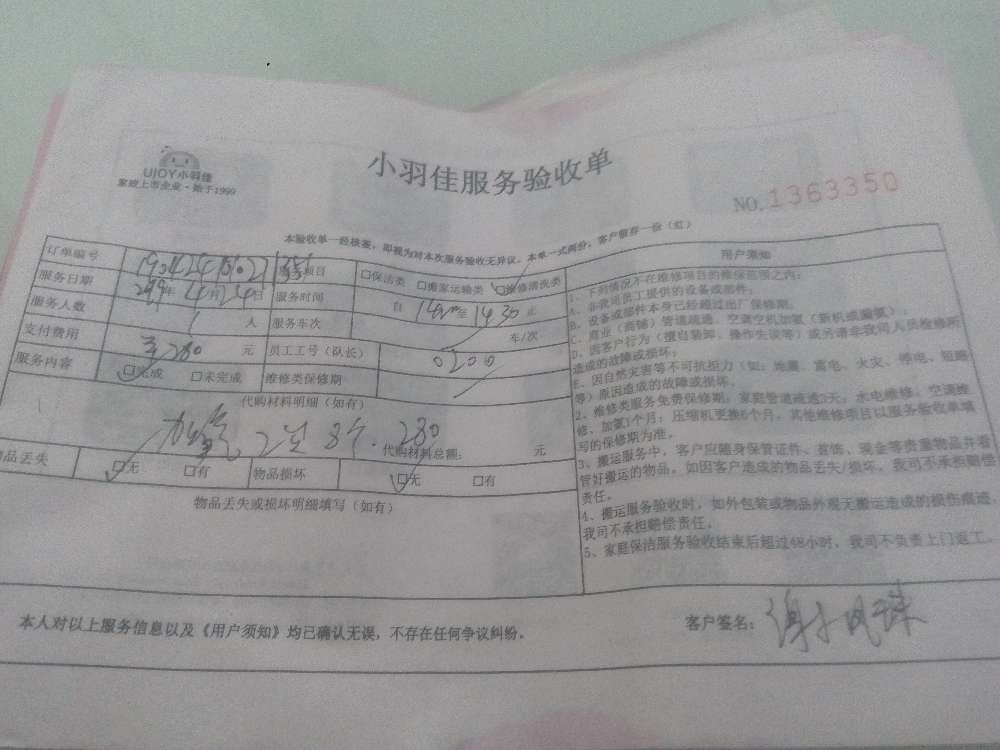 UJOY小羽佳
家政上市企业·始于1999
小羽佳服务验收单
NO.1363350
本验收单一经核签，即视为对本次服务验收无异议。本单一式两份，客户留存一份（红）
订单编号 服务项目 □保洁类 □搬家运输类 □维修清洗类
服务日期 年 4月 日 服务时间 自 至 14 30 止
服务人数 1 人 服务车次 车/次
支付费用 280 元 员工工号（队长） 0200
服务内容 □完成 □未完成 维修类保修期
代购材料明细（如有）
280 代购材料总额： 元
物品丢失 □无 □有 物品损坏 □无 □有
物品丢失或损坏明细填写（如有）
用户须知
1、下列情况不在维修项目的维保范围之内：
A、非我司员工提供的设备或部件；
B、设备或部件本身已经超过出厂保修期。
C、商业（商铺）管道疏通、空调空机加氟（新机或漏氟）；
D、因客户行为（擅自装卸、操作失误等）或另请非我司人员检修所
造成的故障或损坏；
E、因自然灾害等不可抗拒力（如：地震、雷电、火灾、停电、短路
等）原因造成的故障或损坏。
2、维修类服务免费保修期，家庭管道疏通3天；水电维修、空调维
修、加氟1个月；压缩机更换6个月，其他维修项目以服务验收单填
写的保修期为准。
3、搬运服务中，客户应随身保管证件、首饰、现金等贵重物品并看
管好搬运的物品。如因客户造成的物品丢失/损坏，我司不承担赔偿
责任。
4、搬运服务验收时，如外包装或物品外观无搬运造成的损伤痕迹，
我司不承担赔偿责任。
5、家庭保洁服务验收结束后超过48小时，我司不负责上门返工。
本人对以上服务信息以及《用户须知》均已确认无误，不存在任何争议纠纷。
客户签名：